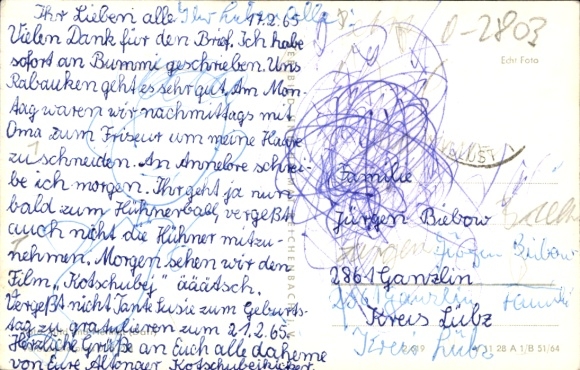 Ihr Lieben alle 17.2.65
Vielen Dank für den Brief. Ich habe
sofort an Bummi geschrieben. Uns
Rabauken geht es sehr gut. Am Mon-
tag waren wir nachmittags mit
Oma zum Friseur um meine Haare
zu schneiden. An Annelore schrei-
be ich morgen. Ihr geht ja nun
bald zum Hühnerball, vergeßt
auch nicht die Hühner mitzu-
nehmen. Morgen sehen wir den
Film „Kotschubej" äääätsch.
Vergeßt nicht Tante Susie zum Geburts-
tag zu gratulieren zum 21.2.65.
Herzliche Grüße an Euch alle daheme
von Eure Altonaer
0-2803
Echt Foto
Familie
Jürgen Biebow
Jürgen Bibow
2861 Ganzlin
2861 Ganzlin Famili
Kreis Lübz
Kreis Lübz
28 A 1/B 51/64